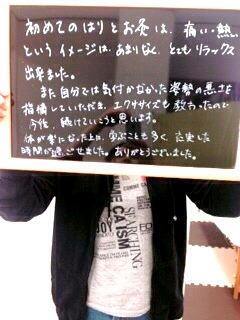 初めてのはりとお灸は、痛い・熱い
というイメージは、あまりなく、とてもリラックス
出来ました。
また自分では気付かなかった姿勢の悪さを
指摘していただき、エクササイズも教わったので
今後、続けていこうと思います。
体が楽になった上に、学ぶことも多く、充実した
時間が過ごせました。ありがとうございました。
SEARCHING